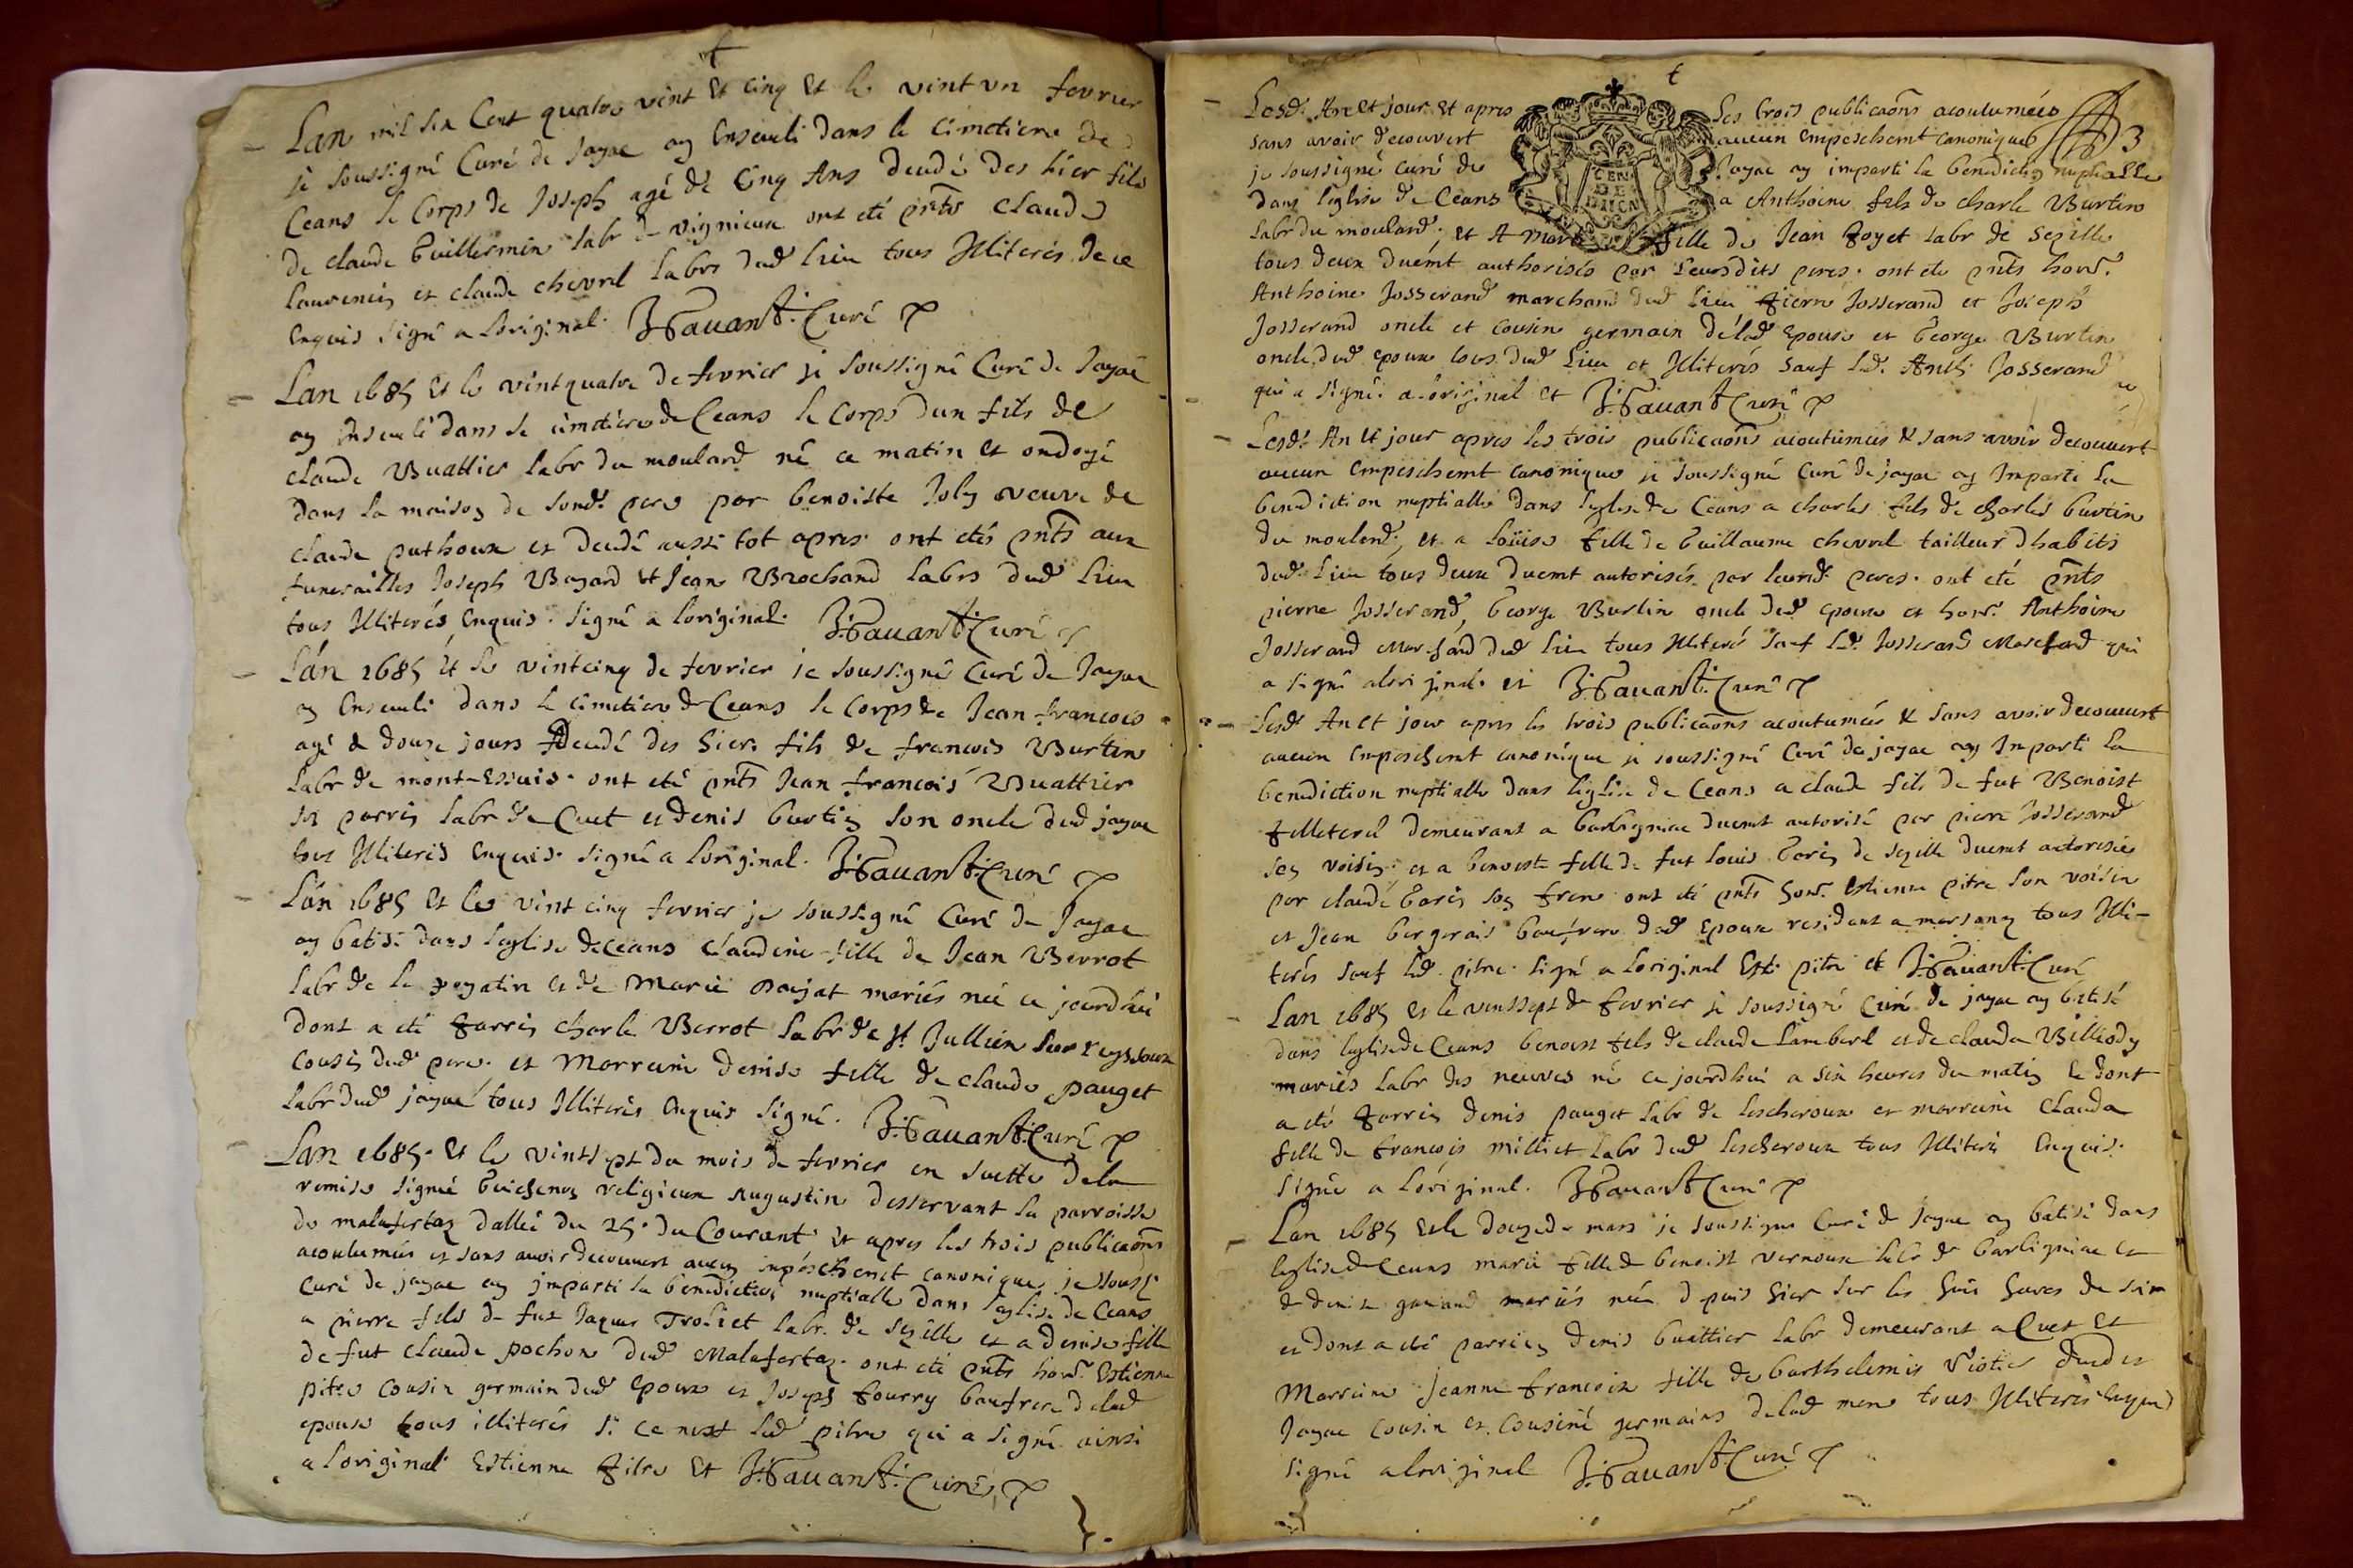 Lan mil six Cent quatre vint et cinq et le vint un fevrier
je soussigné Curé de Jayac ay Enseueli dans le cimetiere de
Ceans le Corps de Joseph agé de Cinq Ans decedé des hier fils
de claude Guillermin labr de vignieux ont eté pnts claude
et claude chevrel labrs dud lieu tous Illiterés de ce
enquis signé a Loriginal. Curé
Lan 1685 et le vintquatre de fevrier je soussigné Curé de Jayac
ay Enseueli dans le cimetiere de Ceans le corps dun fils de
claude Buattier labr du moulard né ce matin et ondoyé
dans la maison de sond. pere par benoiste Joly veuve de
claude puthoux et decedé aussi tot apres. ont etés pnts aux
funerailles Joseph Bayard et Jean Brochand labrs dud lieu
tous Illiterés, Enquis. signé a loriginal. Curé
Lan 1685 et le vintcinq de fevrier je soussigné Curé de Jayac
ay Enseueli dans le cimetiere de Ceans le corps de Jean francois
agé de douze jours decedé des hier. fils de francois Burtin
labr de mont-Essuis. ont eté pnts Jean francois Buattier
son parrin labr de Cuet et denis burtin son oncle dud jayac
tous Illiterés enquis. signé a loriginal. Curé
Lan 1685 et le vint cinq fevrier je soussigné Curé de Jayac
ay batisé dans leglise de ceans claudine fille de Jean Berrot
labr de la et de Marie poujat mariés née ce jourdhui
dont a eté parrin charle Berrot labr de st Jullien sur reyssouze
cousin dud pere. et Marreine denise fille de claude pauget
labr dud jayac tous Illiterés enquis signé. Curé
Lan 1685. et le vintsept du mois de fevrier en suitte de la
remise signée Guichenon religieux Augustin desservant la parroisse
de malafertaz dattée du 25. du Courant et apres les trois publicaons
acoutumées et sans avoir decouvert aucun inpeschemt canonique, je souss.
Curé de jayac ay jmparti la benediction nuptialle dans leglise de Ceans
a pierre fils de fut Jaques Troliet labr. de sezille et a denise fille
de fut claude pochon dud Malafertaz. ont eté pnts hon. Estienne
pitre cousin germain dud Epoux et Joseph fourry baufrere de lad
epouse tous illiterés si ce nest led pitre qui a signé ainsi
a loriginal Estienne pitre et Curé
Lesd. An et jour et apres les trois publicaons acoutumées
sans avoir decouvert aucun Empeschemt canonique 3
je soussigné curé de Jayac ay imparti la benediction nuptialle
dans leglise de Ceans a Anthoine fils de charle Burtin
labr du moulard. et A Marie fille de Jean Goyet labr de sezille
CEN
DE
DUCA
tous deux duemt authorisés par Leursdits peres. ont ete pnts hon.
Anthoine Josserand marchand dud lieu pierre Josserand et Joseph
Josserand oncle et cousin germain de lad epouse et George Burtin
oncle dud epoux tous dud lieu et Illiterés sauf led. Anth Josserand
qui a signé. a original et Curé
Lesd. An et jour apres les trois publicaons acoutumées et sans avoir decouvert
aucun Empeschemt canonique je soussigné Curé de jayac ay Imparti la
benediction nuptialle dans leglise de Ceans a charles fils de charles burtin
du moulard, et a Loüise fille de Guillaume chevrel tailleur dhabits
dud. lieu tous deux duemt autorisés par leursd. peres. ont eté pnts
pierre Josserand, George Burtin oncle dud epoux et hon. Anthoine
Josserand Marchand dud lieu tous Illiteré sauf led. Josserand Marchand qui
a signé alori jinal. et Curé
Lesd An et jour apres les trois publicaons acoutumées et sans avoir decouvert
aucun Empeschemt canonique je soussigné Curé de jayac ay Imparti la
benediction nuptialle dans leglise de Ceans a claude fils de fut Benoist
demeurant a duemt autorisé par pierre Josserand
son voisin. et a benoiste fille de fut louis Gorin de sezille duemt autorisée
par claude Gorin son frere ont eté pnts hon. Estienne pitre son voisin
et Jean bergerais baufrere dud Epoux residant a marsonnay tous Illi-
terés sauf led. pitre. signé a Loriginal Est. pitre et Curé
Lan 1685 et le vintsept de fevrier je soussigné Curé de jayac ay batisé
dans leglise de Ceans benoist fils de claude Lambert et de clauda
mariés labr des neuves né ce jourdhui a six heures du matin et dont
a eté parrin denis pauget labr de lescheroux et marreine Clauda
fille de francois milliet labr dud lescheroux tous Illiterés Enquis.
signé a Loriginal. Curé
Lan 1685 et le douze de mars je soussigné Curé de Jayac ay batisé dans
leglise de Ceans marie fille de benoist vernoux labr de et
de denise mariés née depuis hier sur les huit heures du soir
et dont a eté parrin denis buattier labr demeurant a Cuet et
Marreine Jeanne francoise fille de barthelemis dud et
Jayac cousin et cousine germains de lad mere tous Illiterés enquis
signé a loriginal Curé